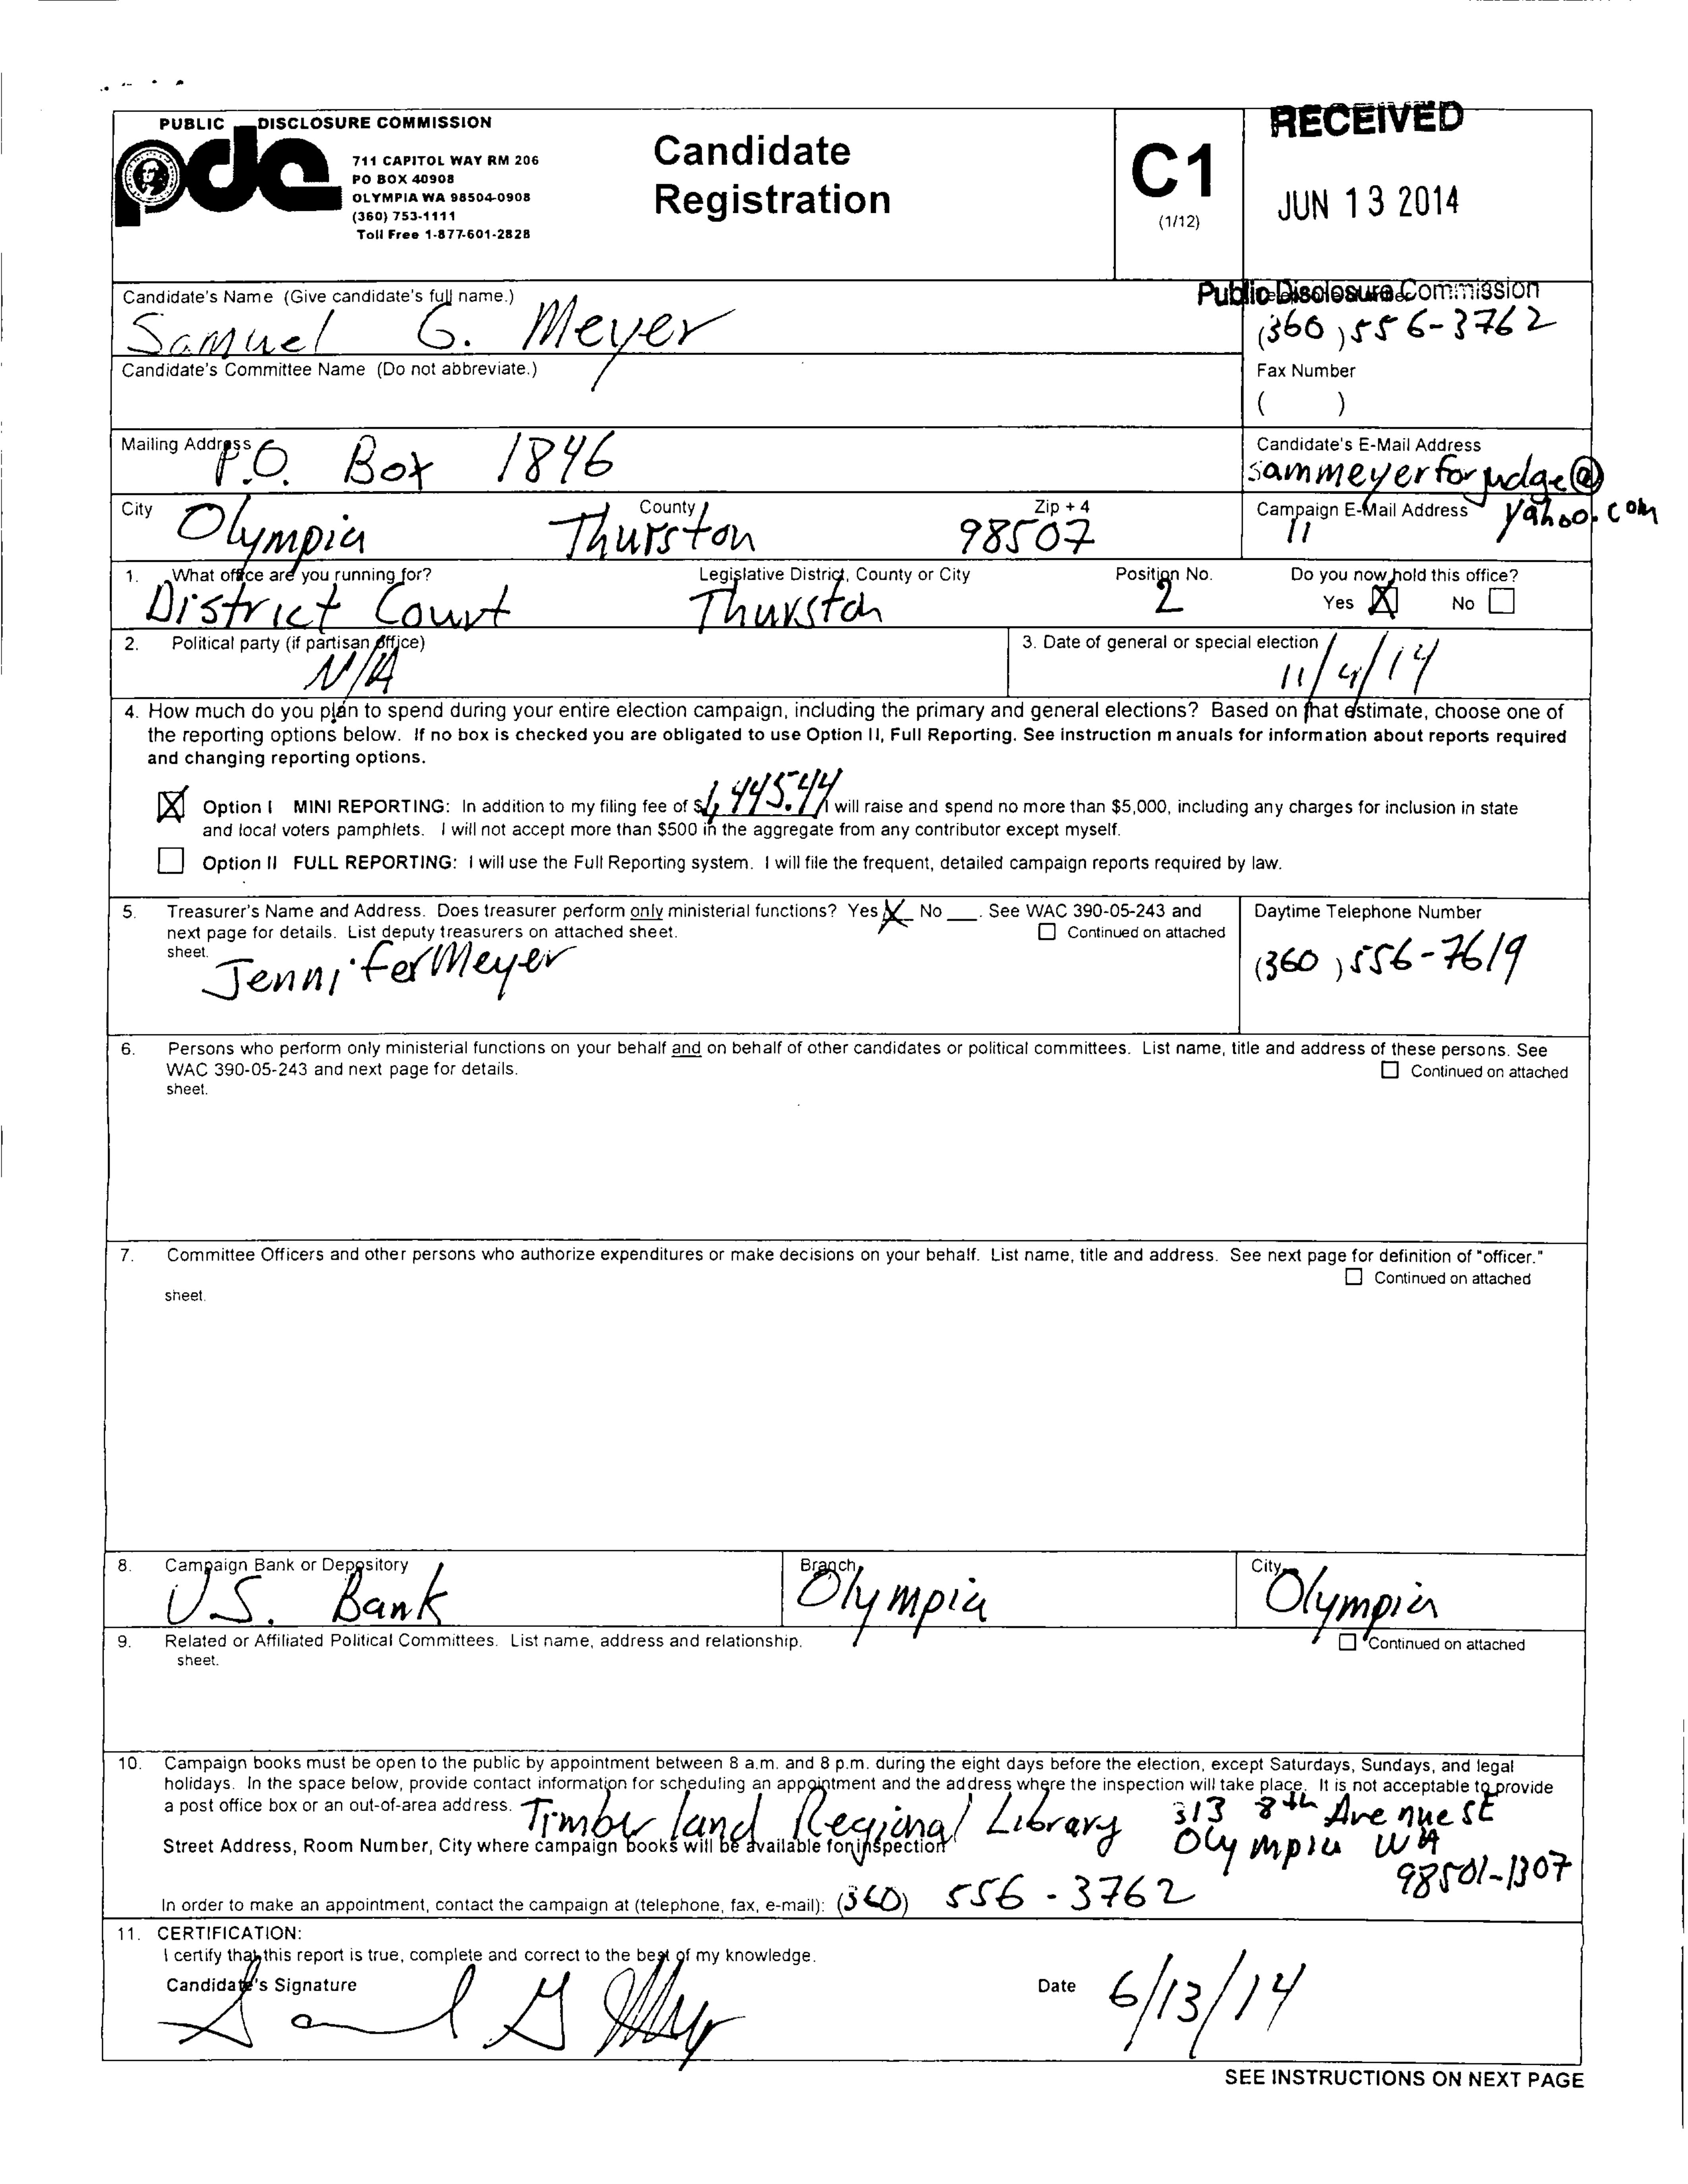 PUBLIC DISCLOSURE COMMISSION
pdc
711 CAPITOL WAY RM 206
PO BOX 40908
OLYMPIA WA 98504-0908
(360) 753-1111
Toll Free 1-877-601-2828
Candidate
Registration
C1
(1/12)
RECEIVED
JUN 13 2014
Public Disclosure Commission
Candidate's Name (Give candidate's full name.)
Samuel G. Meyer
(360) 556-3762
Candidate's Committee Name (Do not abbreviate.)
Fax Number
( )
Mailing Address
P.O. Box 1846
Candidate's E-Mail Address
sammeyerforjudge@
yahoo.com
City
Olympia
County
Thurston
Zip + 4
98507
Campaign E-Mail Address
11
1. What office are you running for?
District Court
Legislative District, County or City
Thurston
Position No.
2
Do you now hold this office?
Yes X No
2. Political party (if partisan office)
N/A
3. Date of general or special election
11/4/14
4. How much do you plan to spend during your entire election campaign, including the primary and general elections? Based on that estimate, choose one of
the reporting options below. If no box is checked you are obligated to use Option II, Full Reporting. See instruction manuals for information about reports required
and changing reporting options.
X Option I MINI REPORTING: In addition to my filing fee of $1,445.44 I will raise and spend no more than $5,000, including any charges for inclusion in state
and local voters pamphlets. I will not accept more than $500 in the aggregate from any contributor except myself.
Option II FULL REPORTING: I will use the Full Reporting system. I will file the frequent, detailed campaign reports required by law.
5. Treasurer's Name and Address. Does treasurer perform only ministerial functions? Yes X No ___. See WAC 390-05-243 and
next page for details. List deputy treasurers on attached sheet. Continued on attached
sheet.
Jennifer Meyer
Daytime Telephone Number
(360) 556-7619
6. Persons who perform only ministerial functions on your behalf and on behalf of other candidates or political committees. List name, title and address of these persons. See
WAC 390-05-243 and next page for details. Continued on attached
sheet.
7. Committee Officers and other persons who authorize expenditures or make decisions on your behalf. List name, title and address. See next page for definition of "officer."
Continued on attached
sheet.
8. Campaign Bank or Depository
U.S. Bank
Branch
Olympia
City
Olympia
9. Related or Affiliated Political Committees. List name, address and relationship. Continued on attached
sheet.
10. Campaign books must be open to the public by appointment between 8 a.m. and 8 p.m. during the eight days before the election, except Saturdays, Sundays, and legal
holidays. In the space below, provide contact information for scheduling an appointment and the address where the inspection will take place. It is not acceptable to provide
a post office box or an out-of-area address.
Timberland Regional Library 313 8th Avenue SE
Olympia WA
98501-1307
Street Address, Room Number, City where campaign books will be available for inspection
In order to make an appointment, contact the campaign at (telephone, fax, e-mail): (360) 556-3762
11. CERTIFICATION:
I certify that this report is true, complete and correct to the best of my knowledge.
Candidate's Signature
Samuel G Meyer
Date 6/13/14
SEE INSTRUCTIONS ON NEXT PAGE